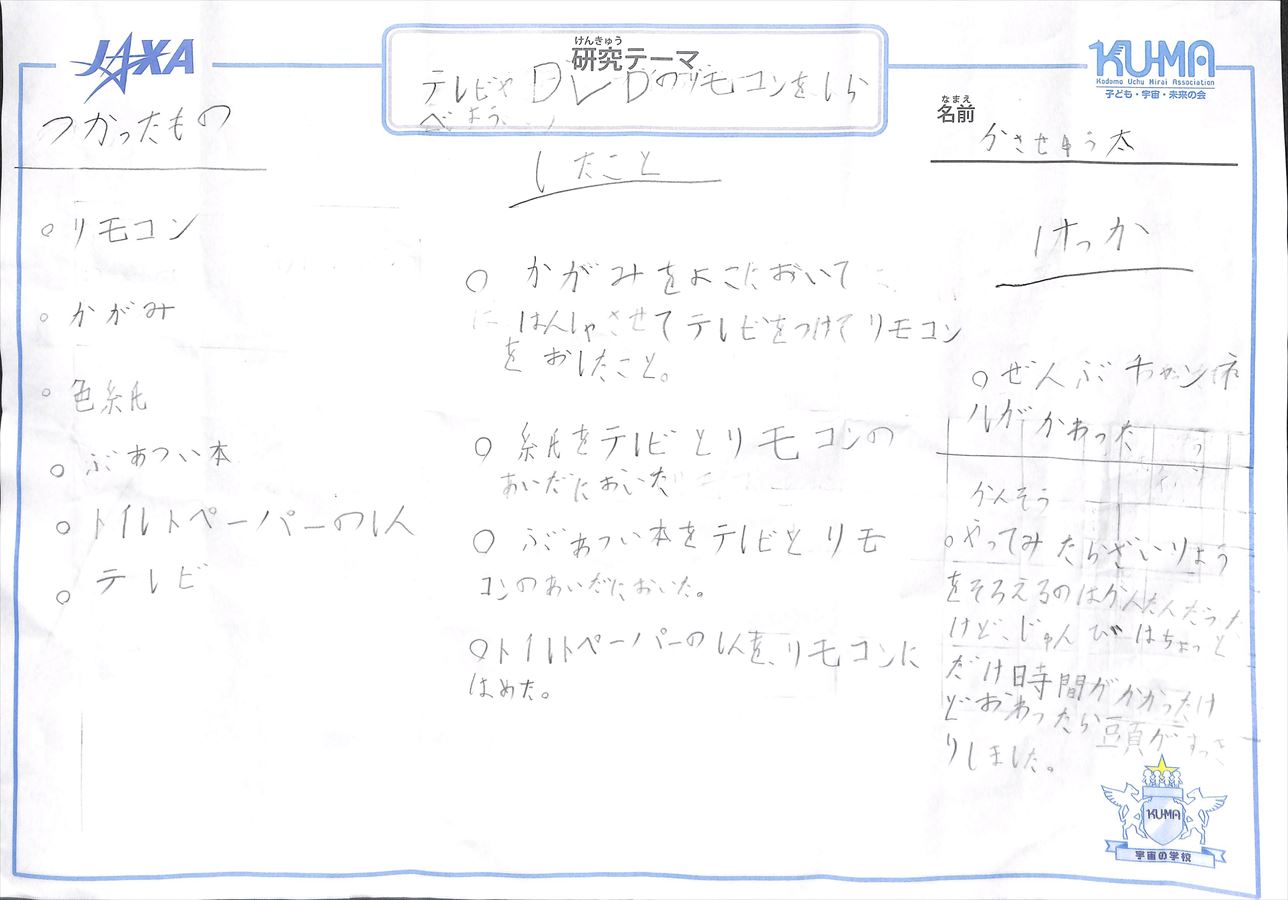 JAXA
けんきゅう
研究テーマ
テレビやDVDのリモコンをしら
べよう。
KU-MA
Kodomo Uchu Mirai Association
子ども・宇宙・未来の会
なまえ
名前
かさせゆう太
つかったもの
○リモコン
○かがみ
○色紙
○ぶあつい本
○トイルトペーパーのしん
○テレビ
したこと
○かがみをよこにおいて
はんしゃさせてテレビをつけてリモコン
をおしたこと。
○紙をテレビとリモコンの
あいだにおいた
○ぶあつい本をテレビとリモ
コンのあいだにおいた。
○トイルトペーパーのしんを、リモコンに
はめた。
けっか
○ぜんぶチャンネ
ルがかわった
かんそう
○やってみたらざいりょう
をそろえるのはかんたんだった
けど、じゅんびはちょっと
だけ時間がかかったけ
どおわったら頭がすっき
りしました。
KU-MA
宇宙の学校